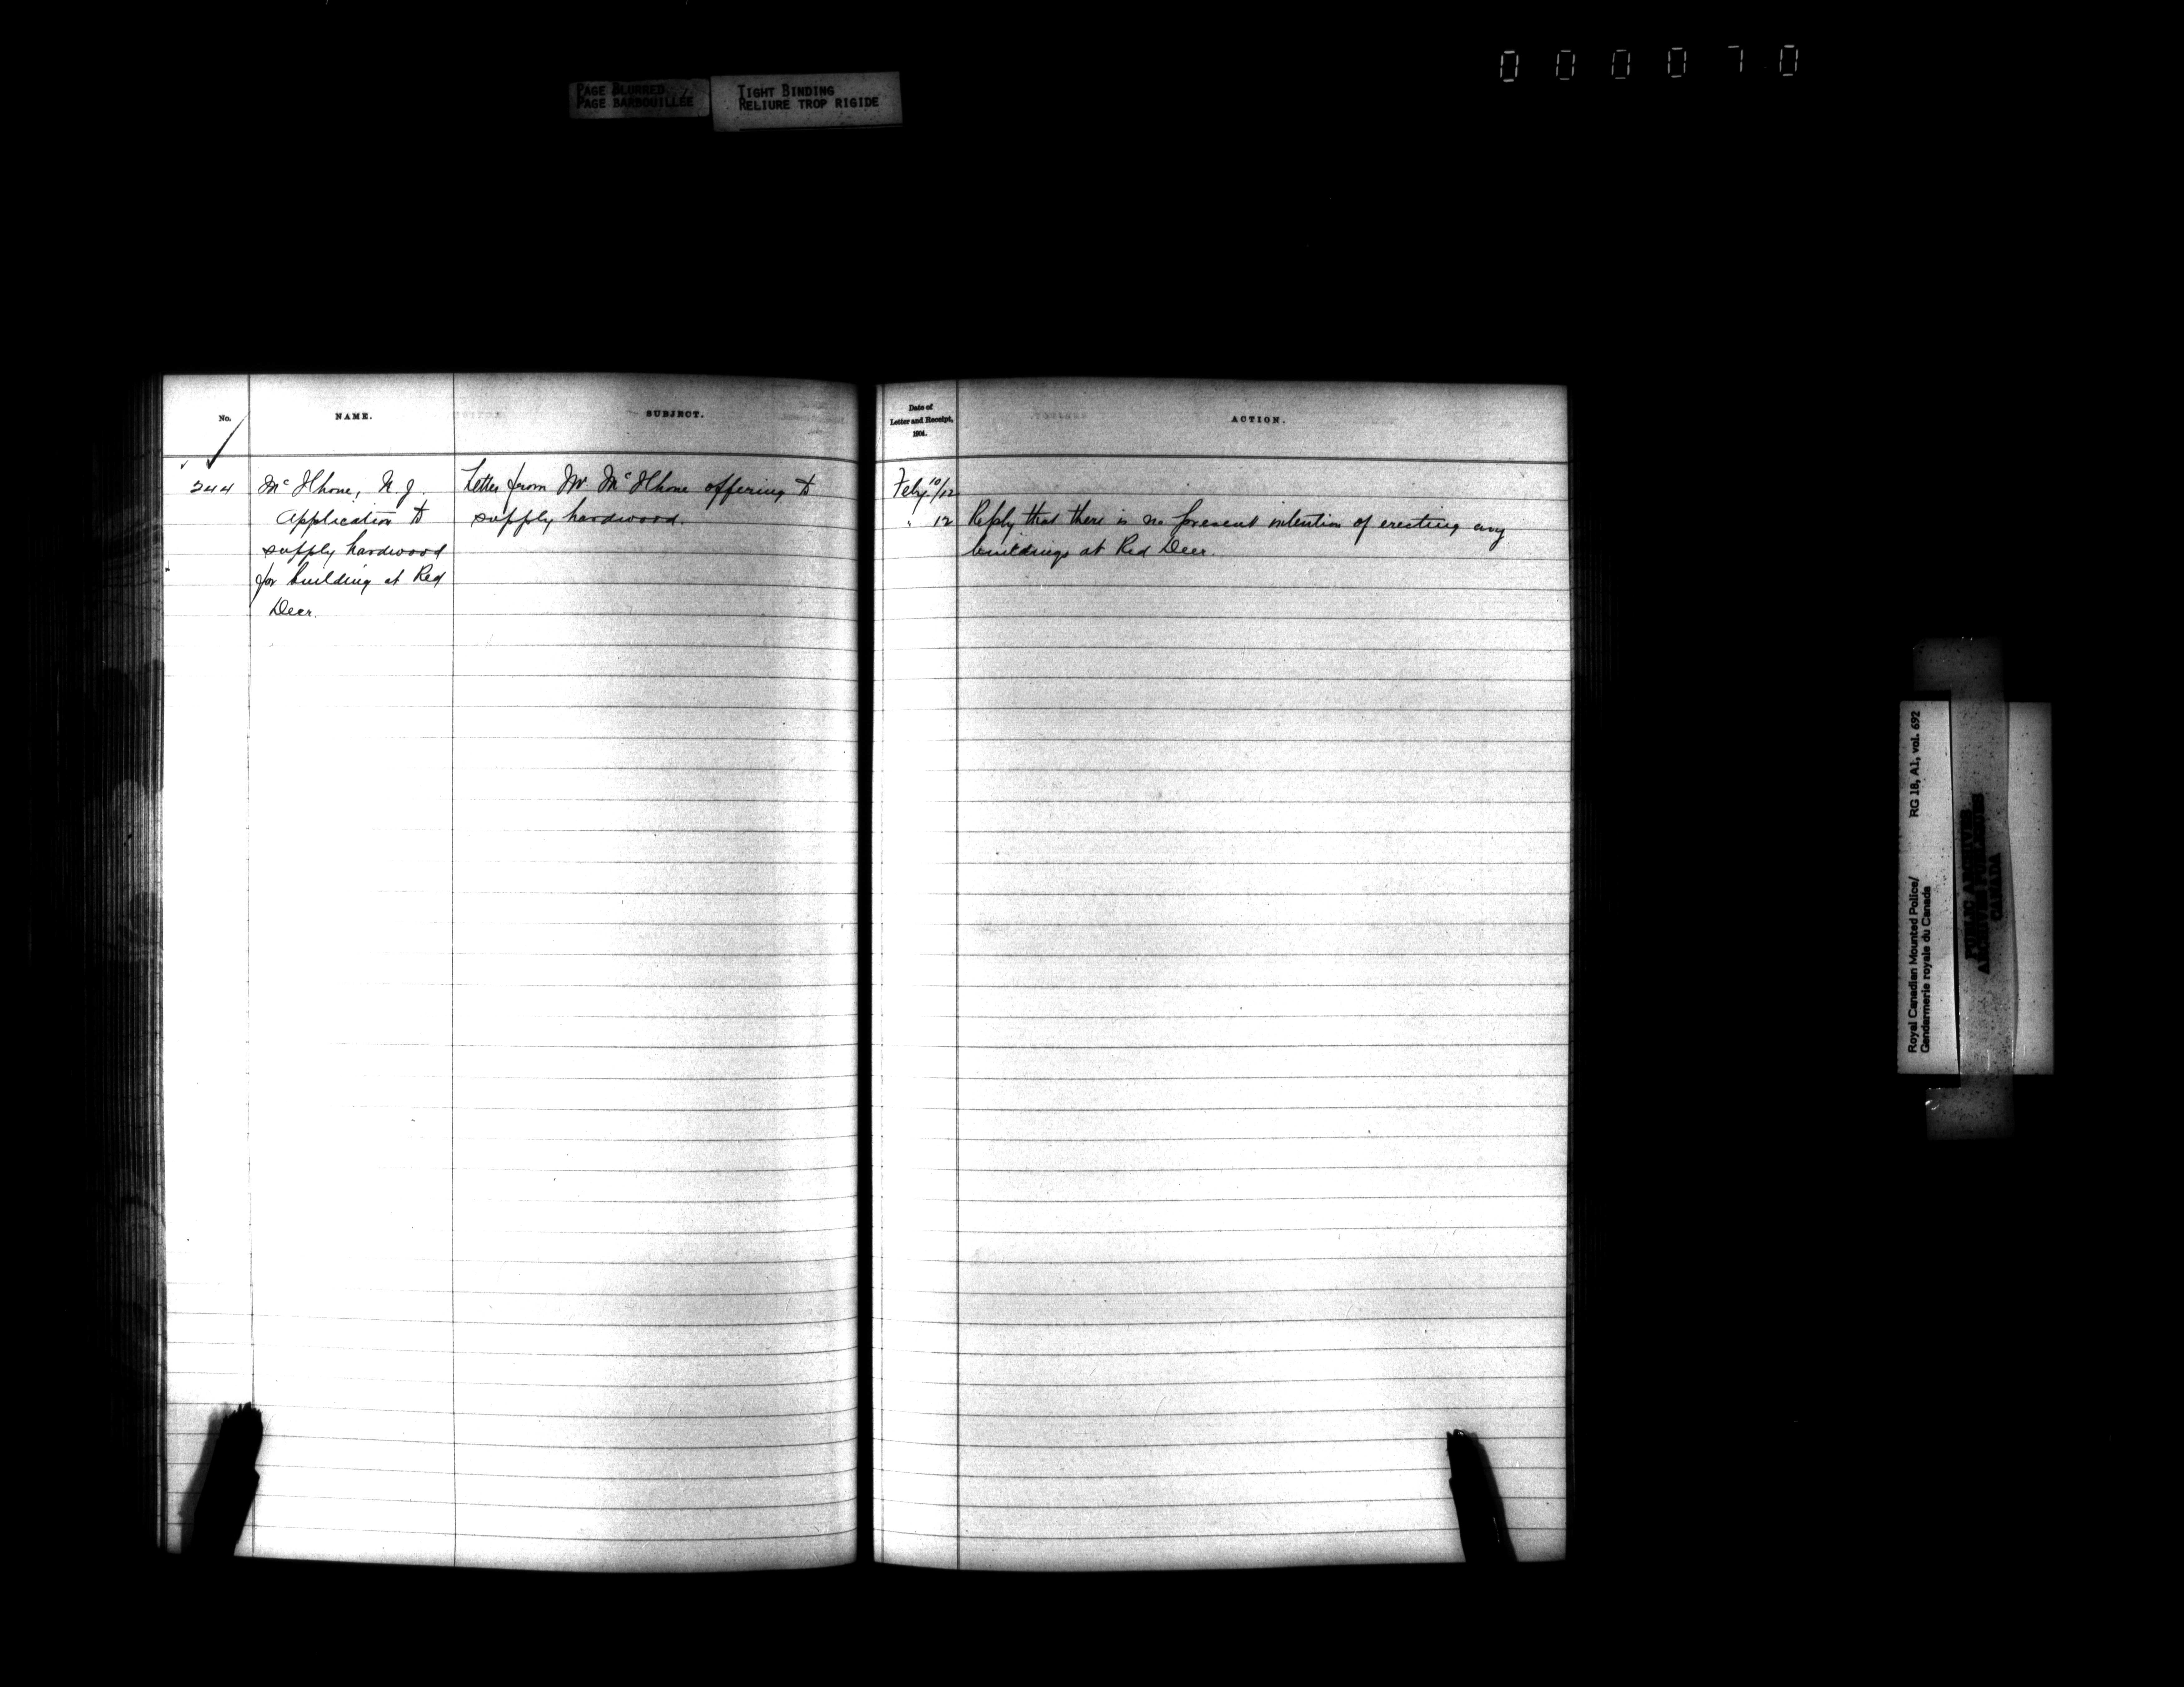 0 0 0 0 7 0
PAGE BLURRED
PAGE BARBOUILLÉE
TIGHT BINDING
RELIURE TROP RIGIDE
No.
NAME.
SUBJECT.
244
McIlhone, N J.
Application to
supply hardwood
for building at Red
Deer.
Letter from Mr McIlhone offering to
supply hardwood.
Date of
Letter and Receipt,
1904.
ACTION.
Feby 10/12
" 12
Reply that there is no present intention of erecting any
buildings at Red Deer.
Royal Canadian Mounted Police/ RG 18, A1, vol. 692
Gendarmerie royale du Canada
PUBLIC ARCHIVES
ARCHIVES PUBLIQUES
CANADA